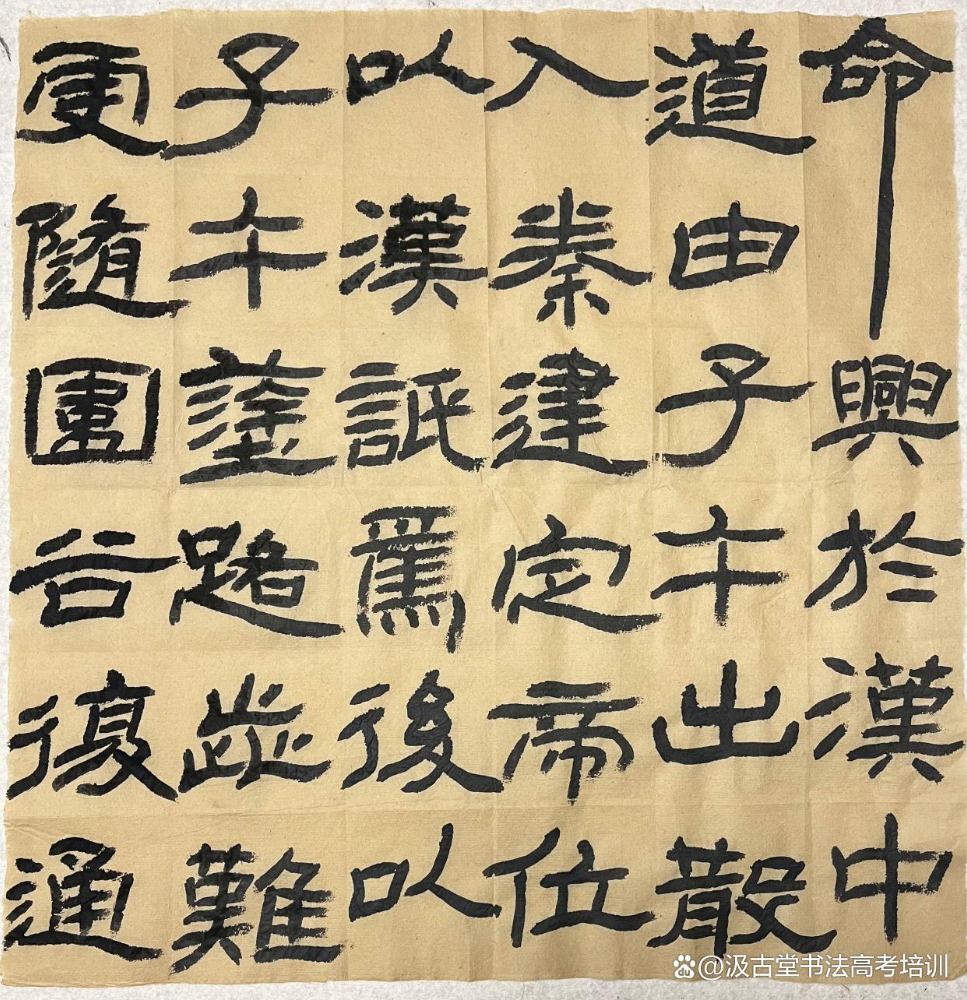 命興於漢中
道由子午出散
入秦建定帝位
以漢詆焉後以
子午塗路歰難
更隨圍谷復通
@汲古堂书法高考培训